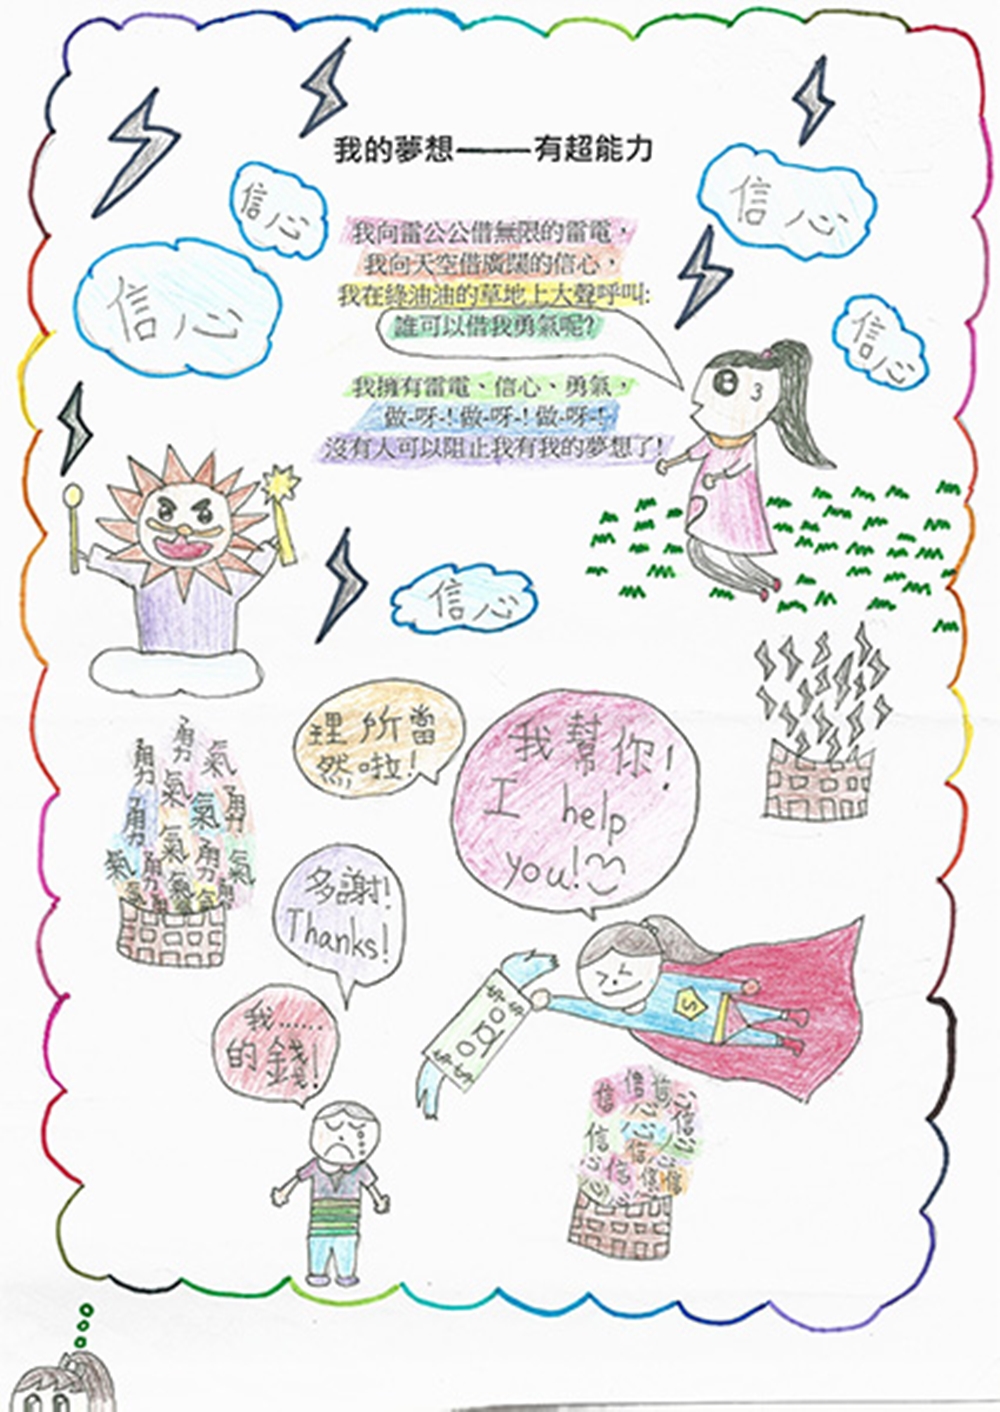 我的夢想——有超能力
信心
信心
信心
信心
我向雷公公借無限的雷電，
我向天空借廣闊的信心，
我在綠油油的草地上大聲呼叫:
誰可以借我勇氣呢?
我擁有雷電、信心、勇氣，
做-呀-! 做-呀-! 做-呀-!
沒有人可以阻止我有我的夢想了!
信心
理所當
然啦!
我幫你!
I help
you!
多謝!
Thanks!
我......
的錢!
S
勇氣
勇氣
勇氣
勇氣
勇氣
信心
信心
信心
信心